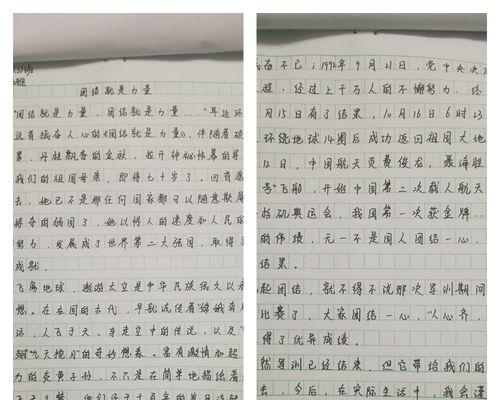 团结就是力量
"团结就是力量，团结就是力量…"耳边环
这首振奋人心的《团结就是力量》，伴随着硕
累，丹桂飘香的金秋，拉开神秘帷幕的
我们的祖国母亲，即将七十岁了。回首过
去，她已不是那任何国家都可以随意欺辱
的弱国了，她以惊人的速度和人民的
努力，发展成了世界第二大强国，取得了
成就。
飞离地球，遨游太空是中华民族很久以
想。在我国的古代，早就流传着"嫦娥奔
话，人飞于天，车走空中的传说，以及
"九天揽月"的奇妙想象。富有激情和超
力的炎黄子孙，不只是在简单地描绘着
已；1992年9月21日，党中央决
程，经过上千万人的不懈努力，经
月15日有了结果，10月16日6时23
环绕地球14圈后成功返回祖国大地
12日，中国航天员费俊龙、聂海胜
号"飞船，开始中国第二次载人航天
奥运会，我国第一次获金牌…
的佳绩，无一不是国人团结一心，
结果。
起团结，就不得不说那次军训期间
比赛了，大家团结一心，"人心齐，
得了优异成绩。
然军训已经结束，但它带给我们的
去，今后，在实际生活中，我会谨